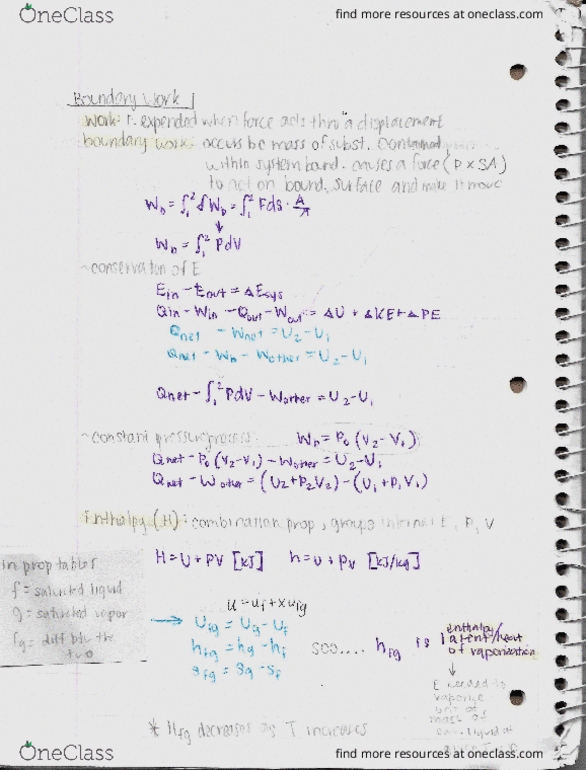 OneClass
find more resources at oneclass.com
Boundary Work
Work: E expended when force acts thru a displacement
boundary work: occurs bc mass of subst. contained
within system bound. causes a force (P x SA)
to act on bound. surface and make it move
W_b = ∫₁² δW_b = ∫₁² Fds · A/A
↓
W_b = ∫₁² PdV
~conservation of E
Ein - Eout = ΔEsys
Qin - Win - Qout - Wout = ΔU + ΔKE + ΔPE
Qnet - Wnet = U₂ - U₁
Qnet - W_b - Wother = U₂ - U₁
Qnet - ∫₁² PdV - Wother = U₂ - U₁
~constant pressure process: W_b = P₀ (V₂ - V₁)
Qnet - P₀ (V₂ - V₁) - Wother = U₂ - U₁
Qnet - Wother = (U₂ + P₂V₂) - (U₁ + P₁V₁)
Enthalpy (H): combination prop, groups internal E, P, V
H = U + PV [kJ] h = u + pv [kJ/kg]
in prop tables
f = saturated liquid
g = saturated vapor
fg = diff btw the
two
u = uf + xufg
→ Ufg = Ug - Uf
hfg = hg - hf
sfg = sg - sf
soo.... hfg is enthalpy/
latent/heat
of vaporization
↓
E needed to
vaporize
unit of
mass of
sat. liquid at
* Hfg decreases as T increases
OneClass
find more resources at oneclass.com